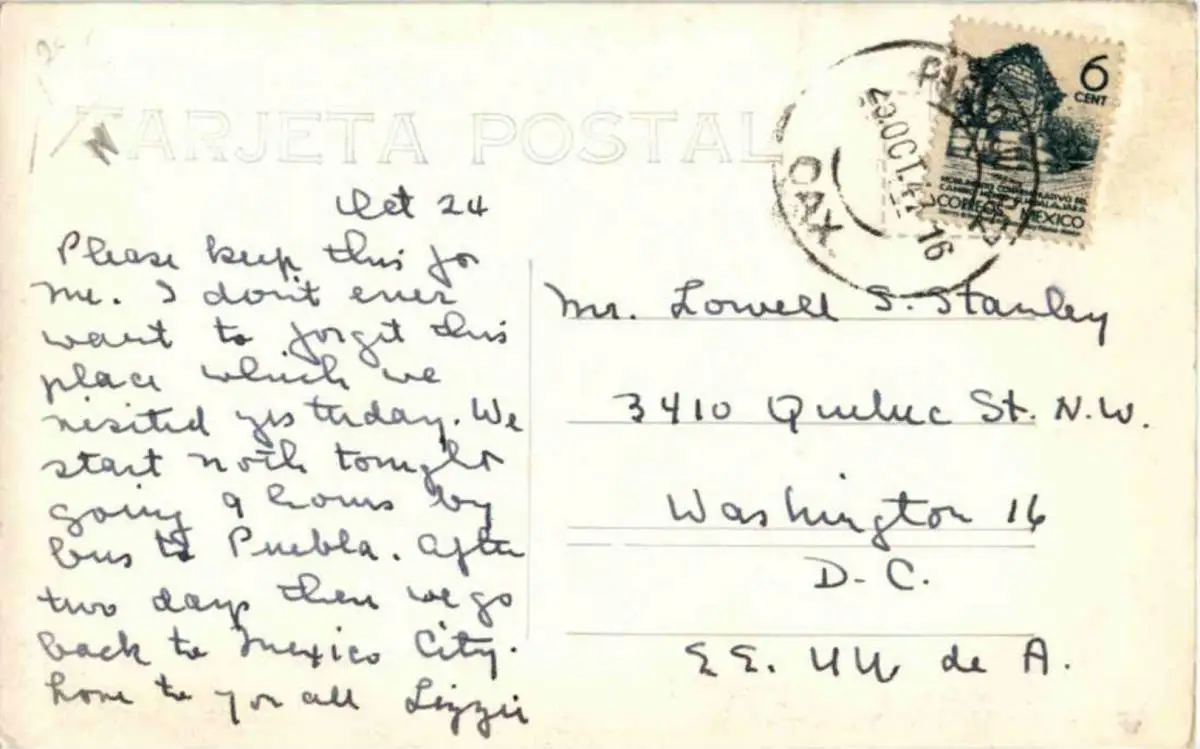 TARJETA POSTAL
6
CENT
CORREOS MEXICO
OAX
OCT. 4
16
Oct 24
Please keep this for
me. I don't ever
want to forget this
place which we
visited yesterday. We
start north tonight
going 9 hours by
bus to Puebla. After
two days then we go
back to Mexico City.
Love to you all Lizzie
Mr. Lowell S. Stanley
3410 Quebec St. N.W.
Washington 16
D-C.
E E. U U de A.